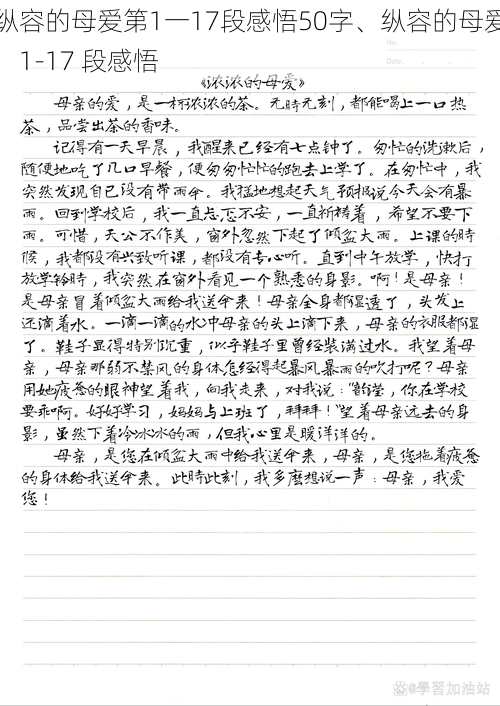 纵容的母爱第1一17段感悟50字、纵容的母爱
1-17 段感悟
No.
Date.
《浓浓的母爱》
母亲的爱，是一杯浓浓的茶。无時无刻，都能喝上一口热
茶，品尝出茶的香味。
记得有一天早晨，我醒来已经有七点钟了。匆忙的洗漱后，
随便地吃了几口早餐，便匆匆忙忙的跑去上学了。在匆忙中，我
突然发现自己没有带雨伞。我猛地想起天气预报说今天会有暴
雨。回到学校后，我一直忐忑不安，一直祈祷着，希望不要下
雨。可惜，天公不作美，窗外忽然下起了倾盆大雨。上课的時
候，我都没有兴致听课，都没有专心听。直到中午放学，快打
放学铃時，我突然在窗外看见一个熟悉的身影。啊！是母亲！
是母亲冒着倾盆大雨给我送伞来！母亲全身都湿透了，头发上
还滴着水。一滴一滴的水冲母亲的头上滴下来，母亲的衣服都湿
了。鞋子显得特别沉重，似乎鞋子里曾经装满过水。我望着母
亲，母亲那弱不禁风的身体怎经得起暴风暴雨的吹打呢？母亲
用她疲惫的眼神望着我，向我走来，对我说：“韵莹，你在学校
要乖啊。好好学习，妈妈去上班了，拜拜！”望着母亲远去的身
影，虽然下着冷冰冰的雨，但我心里是暖洋洋的。
母亲，是您在倾盆大雨中给我送伞来，母亲，是您拖着疲惫
的身体给我送伞来。此時此刻，我多麽想说一声：母亲，我爱
您！
@學習加油站